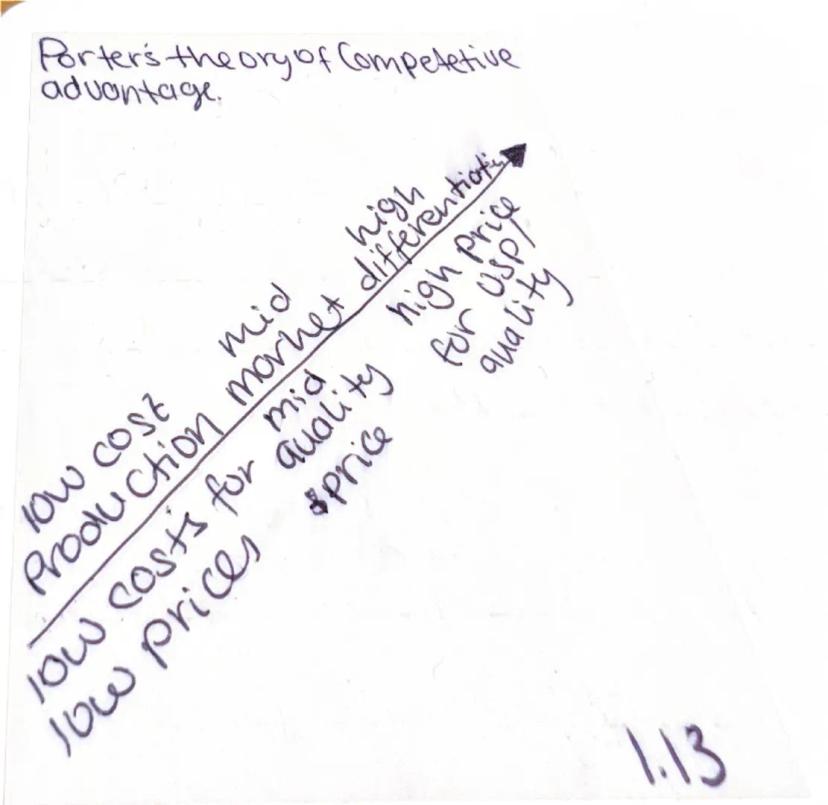 Porter's theory of Competetive
advantage.
low cost
Production
mid
market
high
differentiation
low costs for
low prices
mid
quality
&price
high price
for USP/
quality
1.13